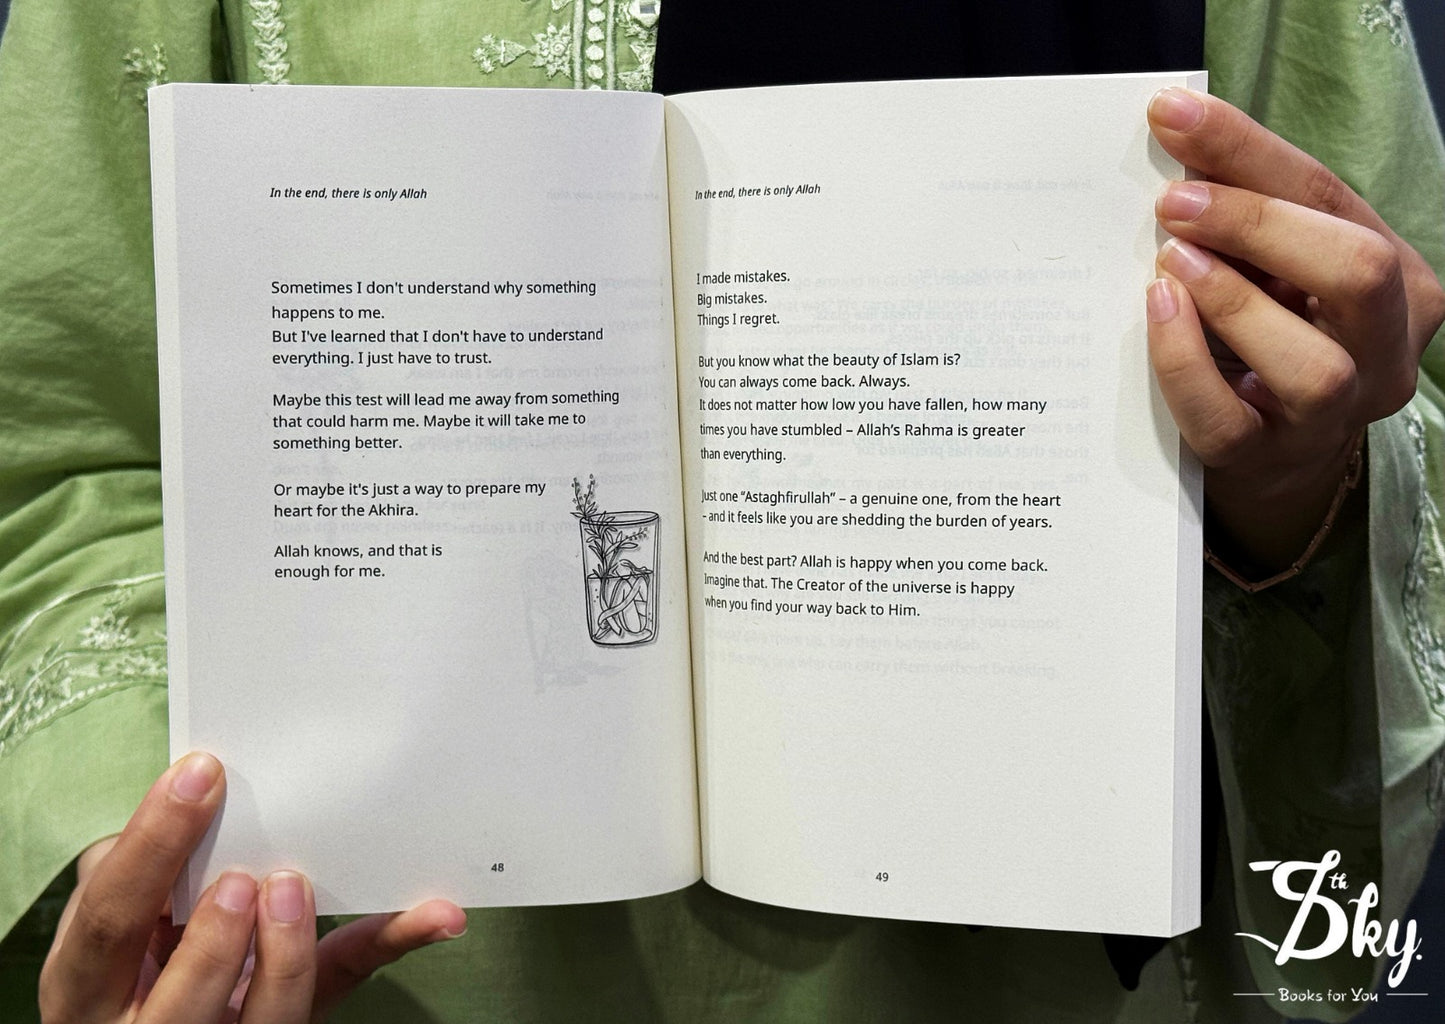 In the end, there is only Allah
Sometimes I don't understand why something
happens to me.
But I've learned that I don't have to understand
everything. I just have to trust.
Maybe this test will lead me away from something
that could harm me. Maybe it will take me to
something better.
Or maybe it's just a way to prepare my
heart for the Akhira.
Allah knows, and that is
enough for me.
48
In the end, there is only Allah
I made mistakes.
Big mistakes.
Things I regret.
But you know what the beauty of Islam is?
You can always come back. Always.
It does not matter how low you have fallen, how many
times you have stumbled – Allah’s Rahma is greater
than everything.
Just one “Astaghfirullah” – a genuine one, from the heart
- and it feels like you are shedding the burden of years.
And the best part? Allah is happy when you come back.
Imagine that. The Creator of the universe is happy
when you find your way back to Him.
49
8th
Sky.
Books for You